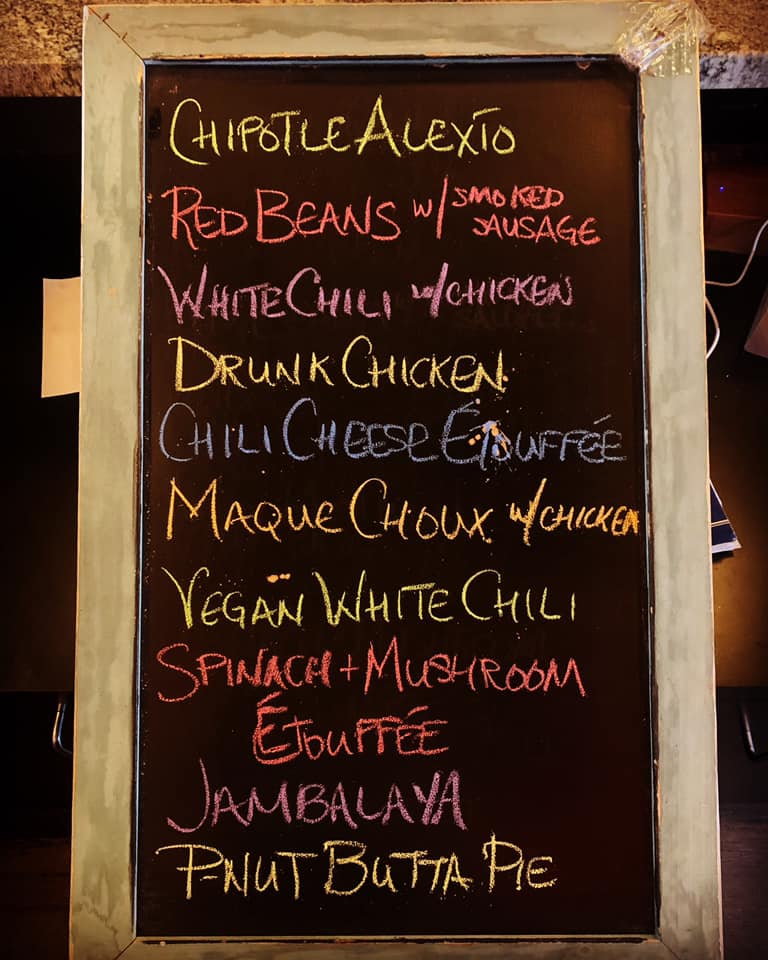 CHIPOTLE ALEXIO
RED BEANS w/ SMOKED SAUSAGE
WHITE CHILI w/CHICKEN
DRUNK CHICKEN
CHILI CHEESE ÉTOUFFÉE
MAQUE CHOUX w/CHICKEN
VEGAN WHITE CHILI
SPINACH + MUSHROOM
ÉTOUFFÉE
JAMBALAYA
P-NUT BUTTA PIE